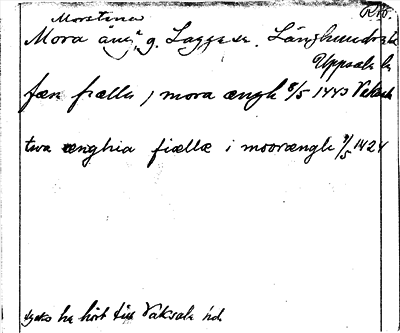 Morstena RÄ5.
Mora äng, g. Laggese. Långhundra hd
Uppsala län
fæn fiælle j mora ængh 8/5 1443 Vaksala
twa ænghia fiællæ i mooræengh 9/5 1424
tycks ha hört till Vaksala hd